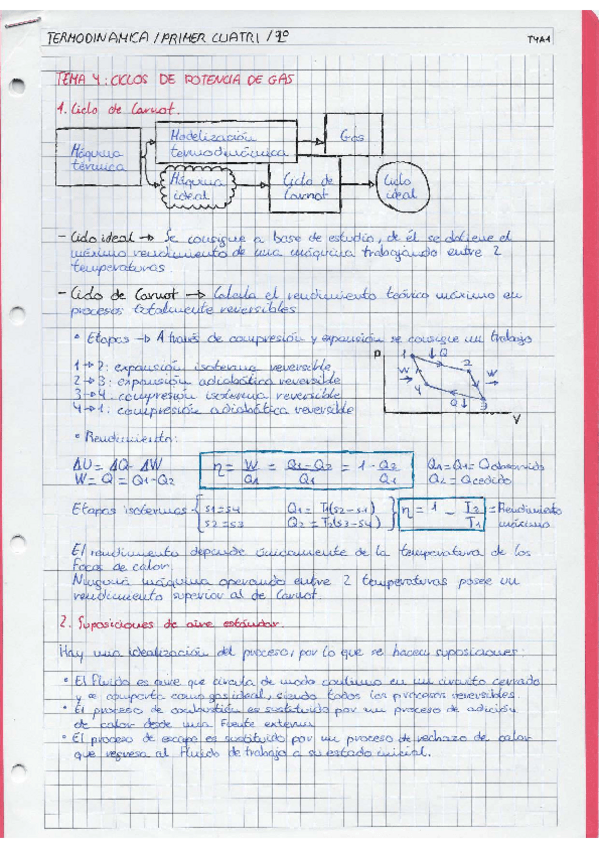 TERMODINAMICA / PRIMER CUATRI / 2º
T4A1
TEMA 4: CICLOS DE POTENCIA DE GAS
1. Ciclo de Carnot.
Máquina térmica
Modelización termodinámica
Gas
Máquina ideal
Ciclo de Carnot
Ciclo ideal
- Ciclo ideal → Se consigue a base de estudio, de él se obtiene el
máximo rendimiento de una máquina trabajando entre 2
temperaturas.
- Ciclo de Carnot → Calcula el rendimiento teórico máximo en
procesos totalmente reversibles
• Etapas → A través de compresión y expansión se consigue un trabajo
1→2: expansión isoterma reversible
2→3: expansión adiabática reversible
3→4: compresión isoterma reversible
4→1: compresión adiabática reversible
P 1 ↓Q 2
W → 4 W →
Q↓ 3
V
• Rendimiento:
ΔU = ΔQ - ΔW
W = Q = Q1-Q2
η = W/Q1 = Q1-Q2/Q1 = 1 - Q2/Q1
Q1 = Q absorvido
Q2 = Q cedido
Etapas isotermas { s1=s4 Q1 = T1(s2-s1) } η = 1 - T2/T1 = Rendimiento
s2=s3 Q2 = T2(s3-s4) máximo
El rendimiento depende únicamente de la temperatura de los
focos de calor.
Ninguna máquina operando entre 2 temperaturas posee un
rendimiento superior al de Carnot.
2. Suposiciones de aire estándar.
Hay una idealización del proceso, por lo que se hacen suposiciones:
• El fluido es aire que circula de modo continuo en un circuito cerrado
y se comporta como gas ideal, siendo todos los procesos reversibles.
• El proceso de combustión es sustituido por un proceso de adición
de calor desde una fuente externa
• El proceso de escape es sustituido por un proceso de rechazo de calor
que regresa al fluido de trabajo a su estado inicial.